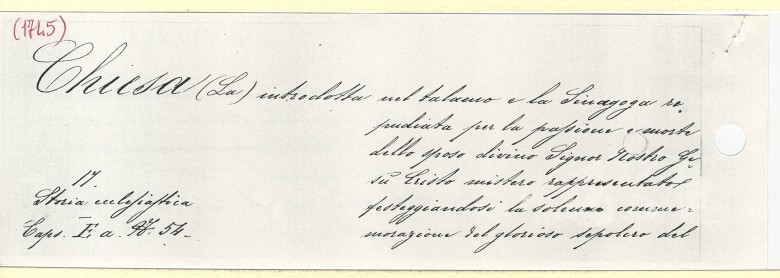 (1745)
Chiesa (La) introdotta nel talamo e la Sinagoga re,
pudiata per la passione e morte
dello sposo divino Signor Nostro Ge,
sù Cristo mistero rappresentato
festeggiandosi la solenne comme=
morazione del glorioso sepolcro del
17.
Storia ecclesiastica
Caps. I a. N. 54-